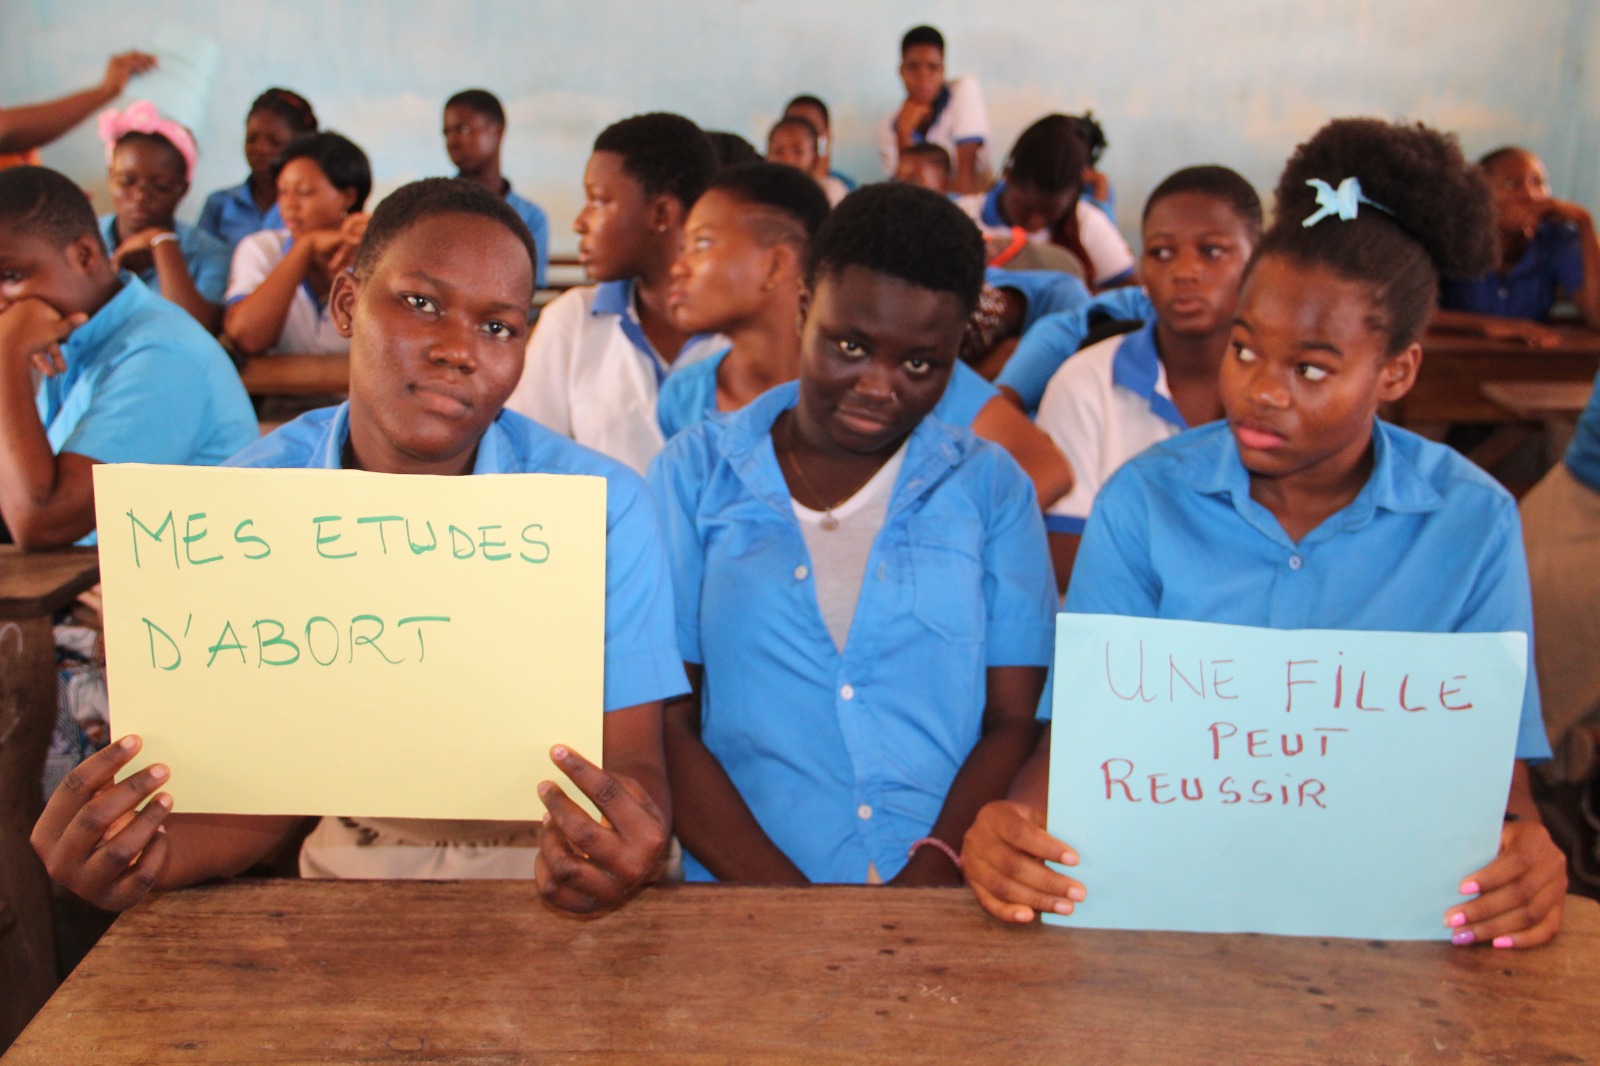 MES ETUDES
D'ABORT
UNE FILLE
PEUT
REUSSIR